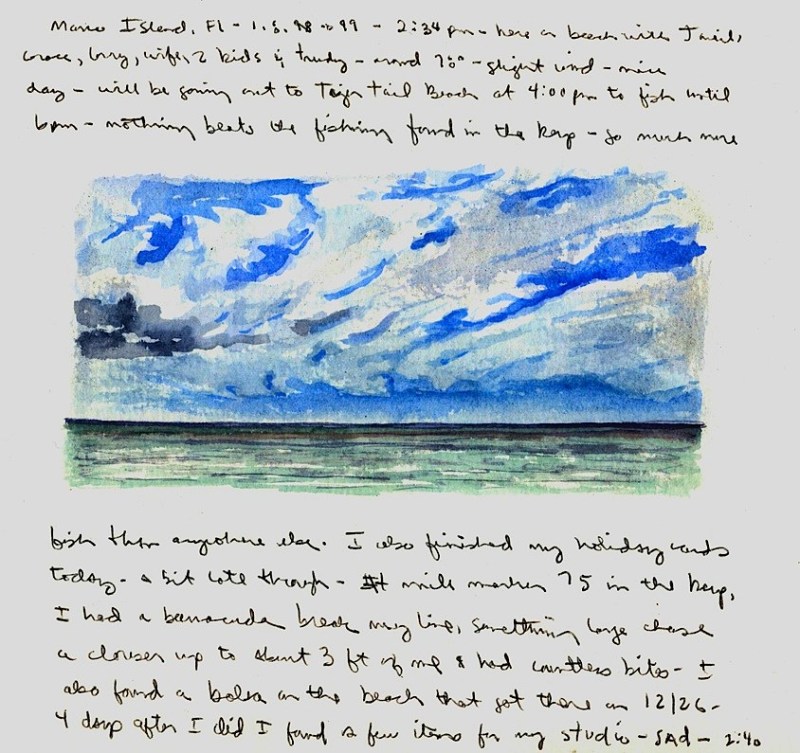 Marco Island, Fl - 1.5. - 99 - 2:34 pm - here on beach with
Grace, Larry, wife, 2 kids & Trudy - around 78° - slight wind - nice
day - will be going out to Tiger Tail Beach at 4:00 pm to fish until
6pm - nothing beats the fishing found in the keys - so much more
fish than anywhere else. I also finished my holiday cards
today - a bit late though - At mile marker 75 in the keys,
I had a barracuda break my line, something large chase
a clouser up to about 3 ft of me & had countless bites - I
also found a balsa on the beach that got there on 12/26 -
4 days after I did I found a few items for my studio - SAD - 2:40